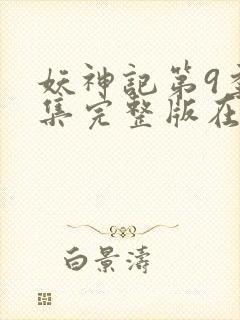 妖神記第9
集完整版在
白景濤